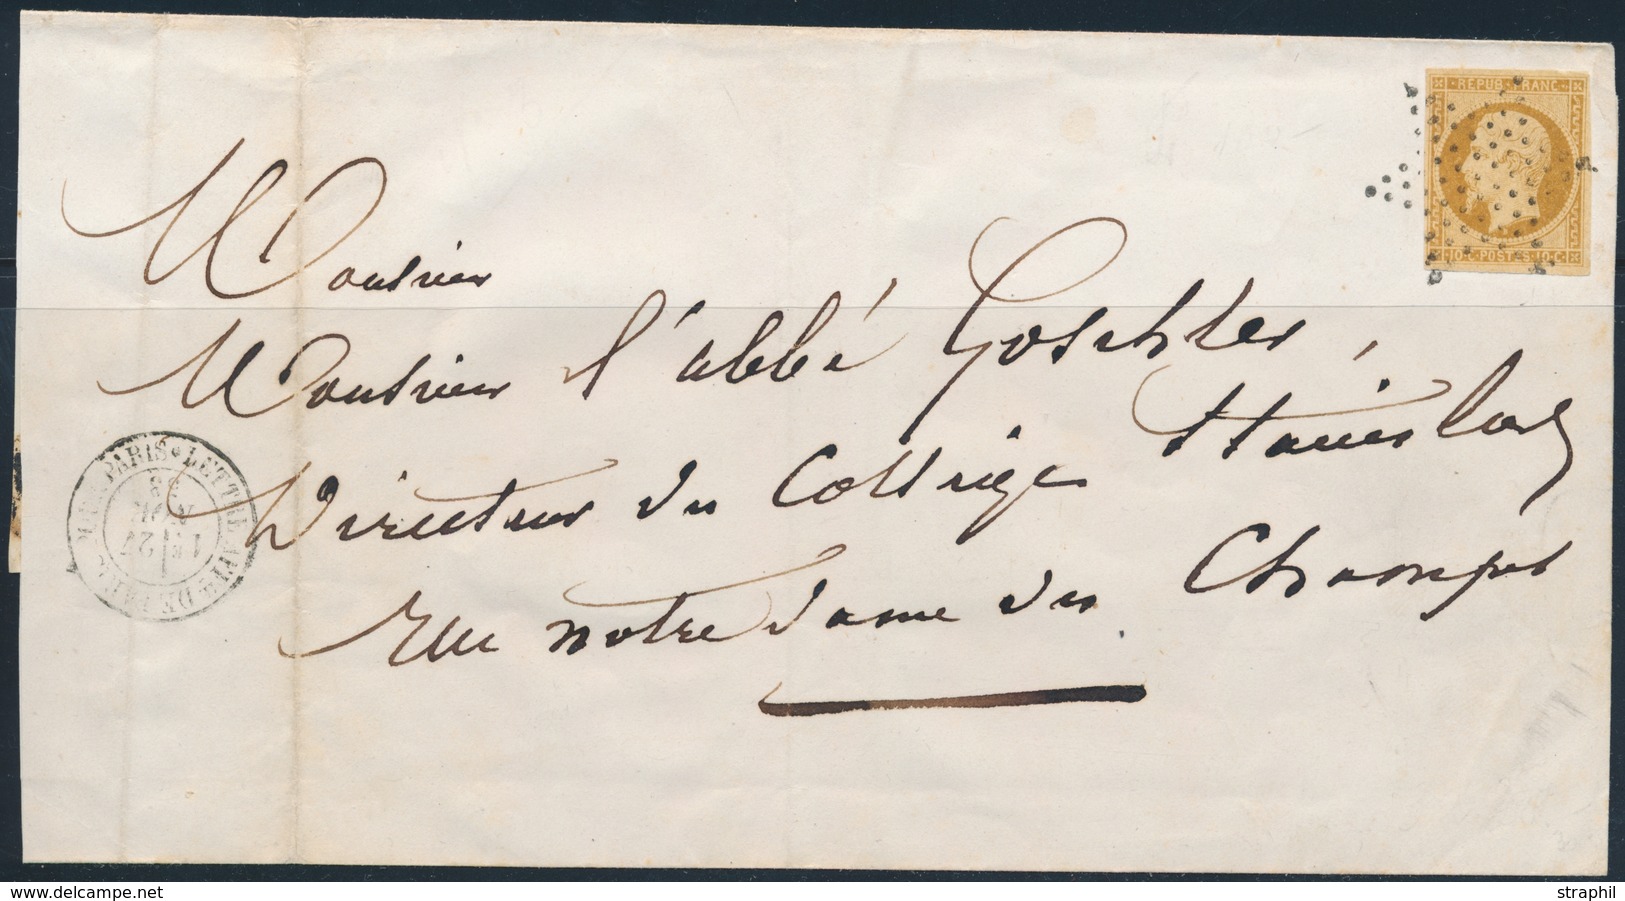 REPUB FRANC
10·C· POSTES 10·C·
Monsieur
Monsieur l'abbé Goschler,
Directeur du Collège Stanislas
Rue notre dame des Champs
PARIS LETTRE AFF
27
53
delcampe.net
straphil